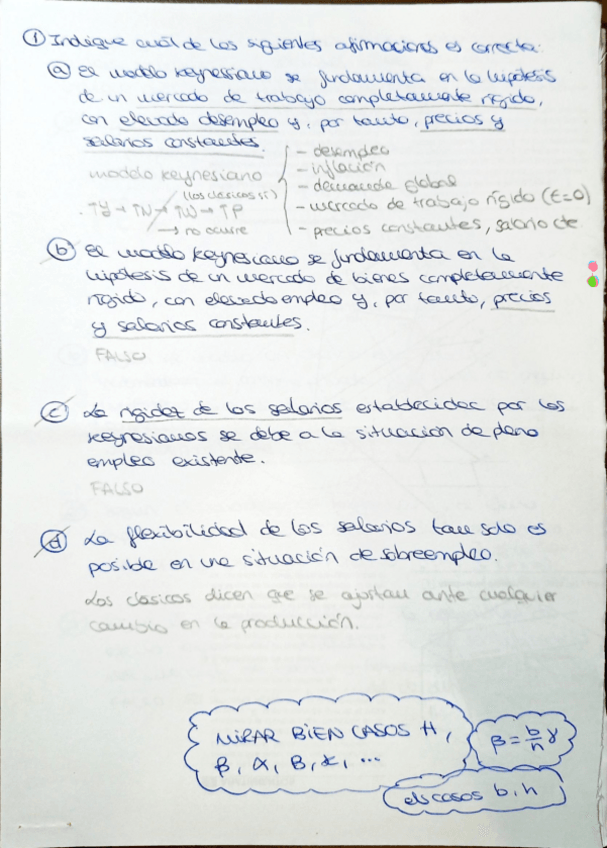 ① Indique cuál de las siguientes afirmaciones es correcta:
ⓐ El modelo keynesiano se fundamenta en la hipótesis
de un mercado de trabajo completamente rígido,
con elevado desempleo y, por tanto, precios y
salarios constantes.
modelo keynesiano
- desempleo
- inflación
- demanda global
- mercado de trabajo rígido (ε=0)
- precios constantes, salario cte.
(los clásicos sí)
↑Y → ↑N → ↑W → ↑P
→ no ocurre
ⓑ El modelo keynesiano se fundamenta en la
hipótesis de un mercado de bienes completamente
rígido, con elevado empleo y, por tanto, precios
y salarios constantes.
FALSO
ⓒ La rigidez de los salarios establecidas por los
keynesianos se debe a la situación de pleno
empleo existente.
FALSO
ⓓ La flexibilidad de los salarios tan solo es
posible en una situación de sobreempleo.
Los clásicos dicen que se ajustan ante cualquier
cambio en la producción.
MIRAR BIEN CASOS H,
β, α, B, ...
β = b/h γ
casos b, h